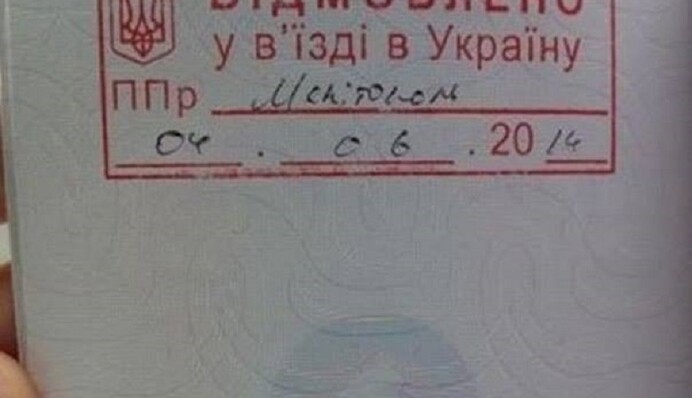 ВІДМОВЛЕНО
у в'їзді в Україну
ППр Мелітополь
04 . 06 . 2014